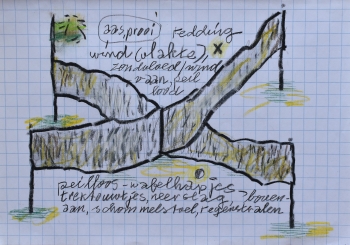 aas, prooi redding
wind (vlakte), x
zonvloed/wind
vaan, zeil
lood
zeilloos - wafelhapjes
trektouwtjes, neerslag > boven-
aan, schommelstoel, regenstralen